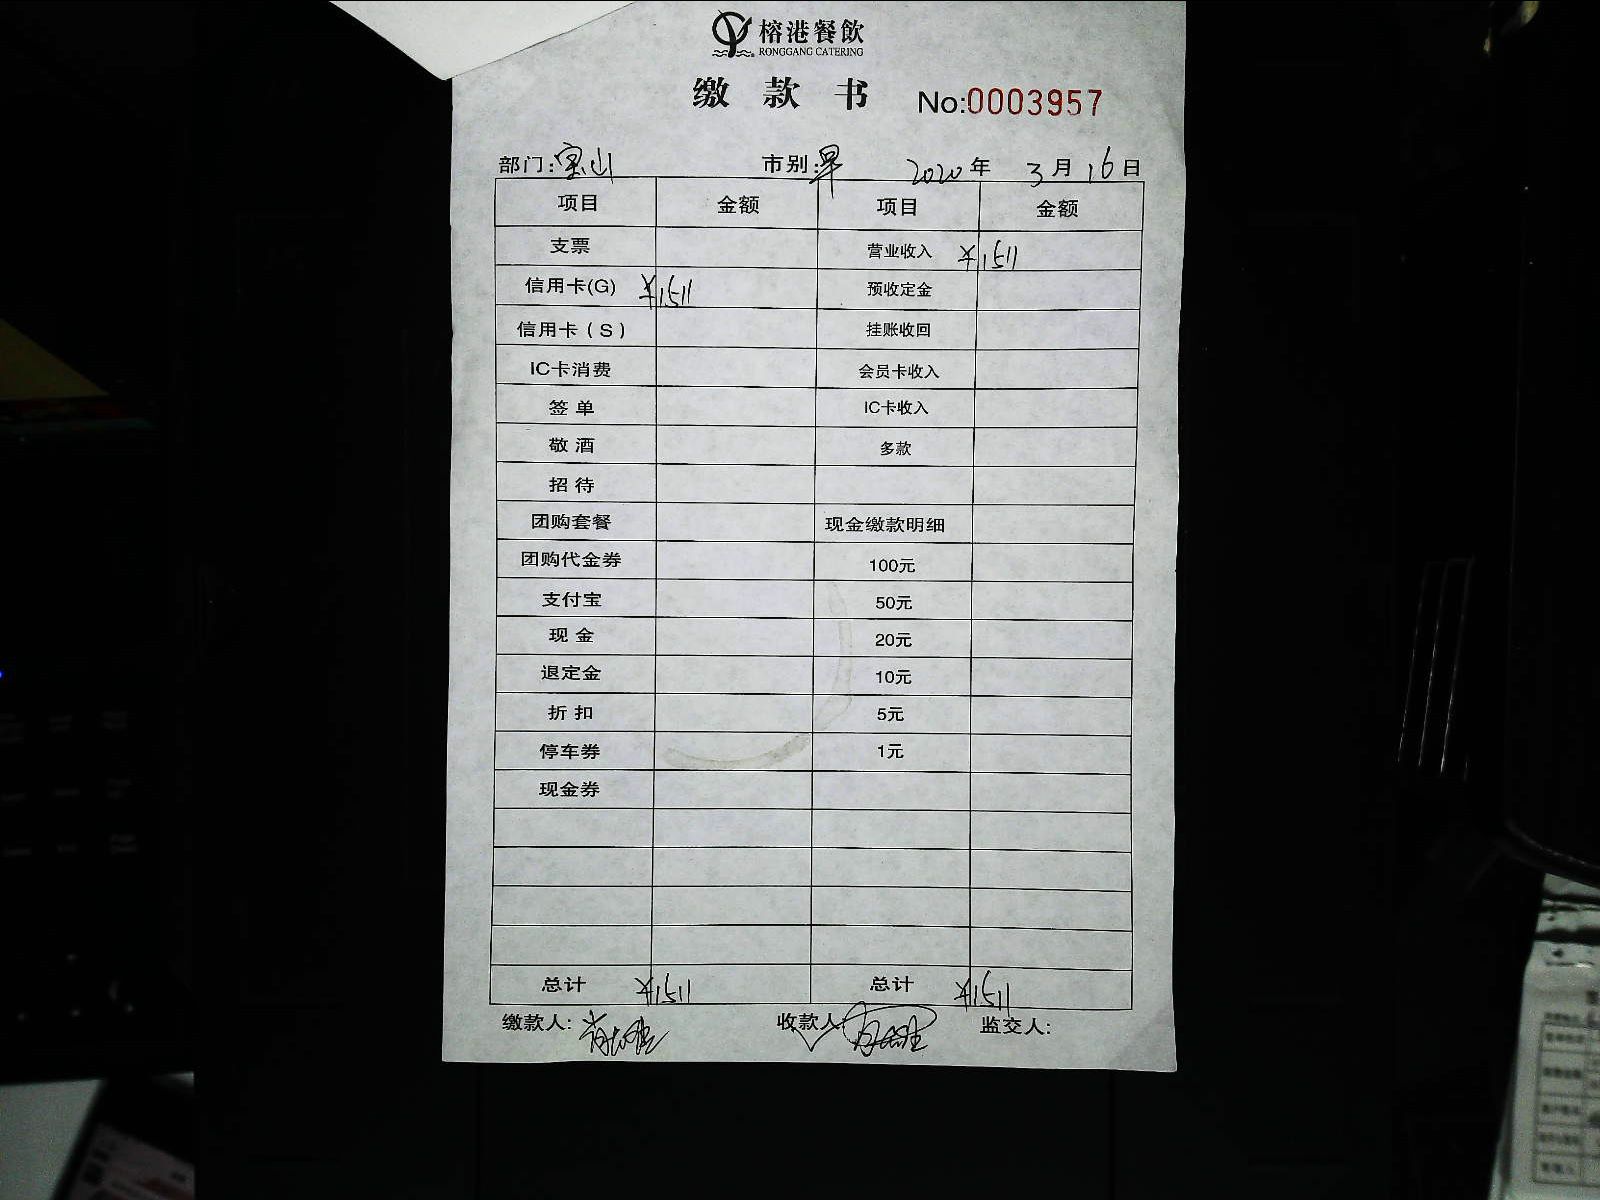 榕港餐飲
RONGGANG CATERING
缴 款 书 No:0003957
部门:宝山 市别:早 2020年 3月16日
项目 金额 项目 金额
支票 营业收入 ¥1511
信用卡(G) ¥1511 预收定金
信用卡(S) 挂账收回
IC卡消费 会员卡收入
签单 IC卡收入
敬酒 多款
招待
团购套餐 现金缴款明细
团购代金券 100元
支付宝 50元
现金 20元
退定金 10元
折扣 5元
停车券 1元
现金券
总计 ¥1511 总计 ¥1511
缴款人: 收款人 监交人: